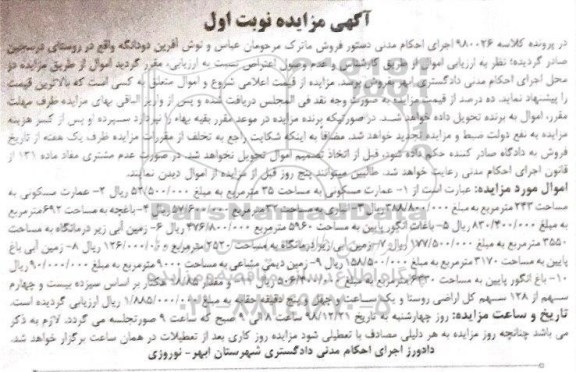 آگهی مزایده نوبت اول
در پرونده کلاسه ۹۸۰۰۲۶ اجرای احکام مدنی دستور فروش ماترک مرحومان عباس و نوش آفرین دودانگه واقع در روستای درسجین
صادر گردیده؛ نظر به ارزیابی اموال از طریق کارشناس و عدم وصول اعتراض نسبت به ارزیابی، مقرر گردید اموال از طریق مزایده در
محل اجرای احکام مدنی دادگستری ابهر بفروش برسد. مزایده از قیمت اعلامی شروع و اموال متعلق به کسی است که بالاترین قیمت
را پیشنهاد نماید. ده درصد از قیمت مزایده به صورت وجه نقد فی المجلس دریافت شده و پس از واریز الباقی بهای مزایده ظرف مهلت
مقرر، اموال به برنده تحویل داده خواهد شد. در صورتیکه برنده مزایده در موعد مقرر بقیه بهاء را نپردازد سپرده او پس از کسر هزینه
مزایده به نفع دولت ضبط و مزایده تجدید خواهد شد. مضافاً به اینکه شکایت راجع به تخلف از مقررات مزایده ظرف یک هفته از تاریخ
فروش به دادگاه صادر کننده حکم داده شود، قبل از اتخاذ تصمیم اموال تحویل نخواهد شد. در صورت عدم مشتری مفاد ماده ۱۳۱ از
قانون اجرای احکام مدنی رعایت خواهد شد. طالبین میتوانند پنج روز قبل از مزایده از اموال دیدن نمایند.
اموال مورد مزایده: عبارت است از ۱- عمارت مسکونی به مساحت ۳۵ مترمربع به مبلغ ۵۲/۵۰۰/۰۰۰ ریال ۲- عمارت مسکونی به
مساحت ۲۴۳ مترمربع به مبلغ ۳۸۸/۸۰۰/۰۰۰ ریال ۳- اناری به مساحت ۳۲ مترمربع ۵۷/۶۰۰/۰۰۰ ریال ۴- باغچه به مساحت ۶۹۲ مترمربع
به مبلغ ۸۳۰/۴۰۰/۰۰۰ ریال ۵- باغات انگور پایین به مساحت ۵۹۶۰ مترمربع ۴۷۶/۸۰۰/۰۰۰ ریال ۶- زمین آبی زیر درمانگاه به مساحت
۳۵۵۰ مترمربع به مبلغ ۱۷۷/۵۰۰/۰۰۰ ریال ۷- زمین آبی زیر درمانگاه به مساحت ۲۵۲۰ مترمربع ۱۲۶/۰۰۰/۰۰۰ ریال ۸- زمین آبی باغ
پایین به مساحت ۳۱۷۰ مترمربع به مبلغ ۱۵۸/۵۰۰/۰۰۰ ریال ۹- زمین دیمی مشاعی به مساحت ۹۰۰۰ مترمربع به مبلغ ۹۰/۰۰۰/۰۰۰ ریال
۱۰- باغ انگور پایین به مساحت ۶۳۳۰ مترمربع به مبلغ ۵۰۶/۴۰۰/۰۰۰ ریال ۱۱- و مقدار ۱۸/۸۵ هکتار بر اساس سیزده بیست و چهارم
سهم از ۱۲۸ سهم کل اراضی روستا و یکساعت و چهل و پنج دقیقه حقابه به مبلغ ۱/۸۸۵/۰۰۰/۰۰۰ ریال ارزیابی گردیده است.
تاریخ و ساعت مزایده: روز چهارشنبه به تاریخ ۹۸/۱۲/۲۱ ساعت ۸ الی ۹ صبح که ساعت ۹ صورتجلسه می گردد. لازم به ذکر
می باشد چنانچه روز مزایده به هر دلیلی مصادف با تعطیلی شود مزایده روز کاری بعد از تعطیلات در همان ساعت برگزار خواهد شد.
دادورز اجرای احکام مدنی دادگستری شهرستان ابهر- نوروزی